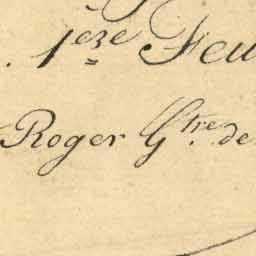 . 1.ere Feu
Roger G.tre de